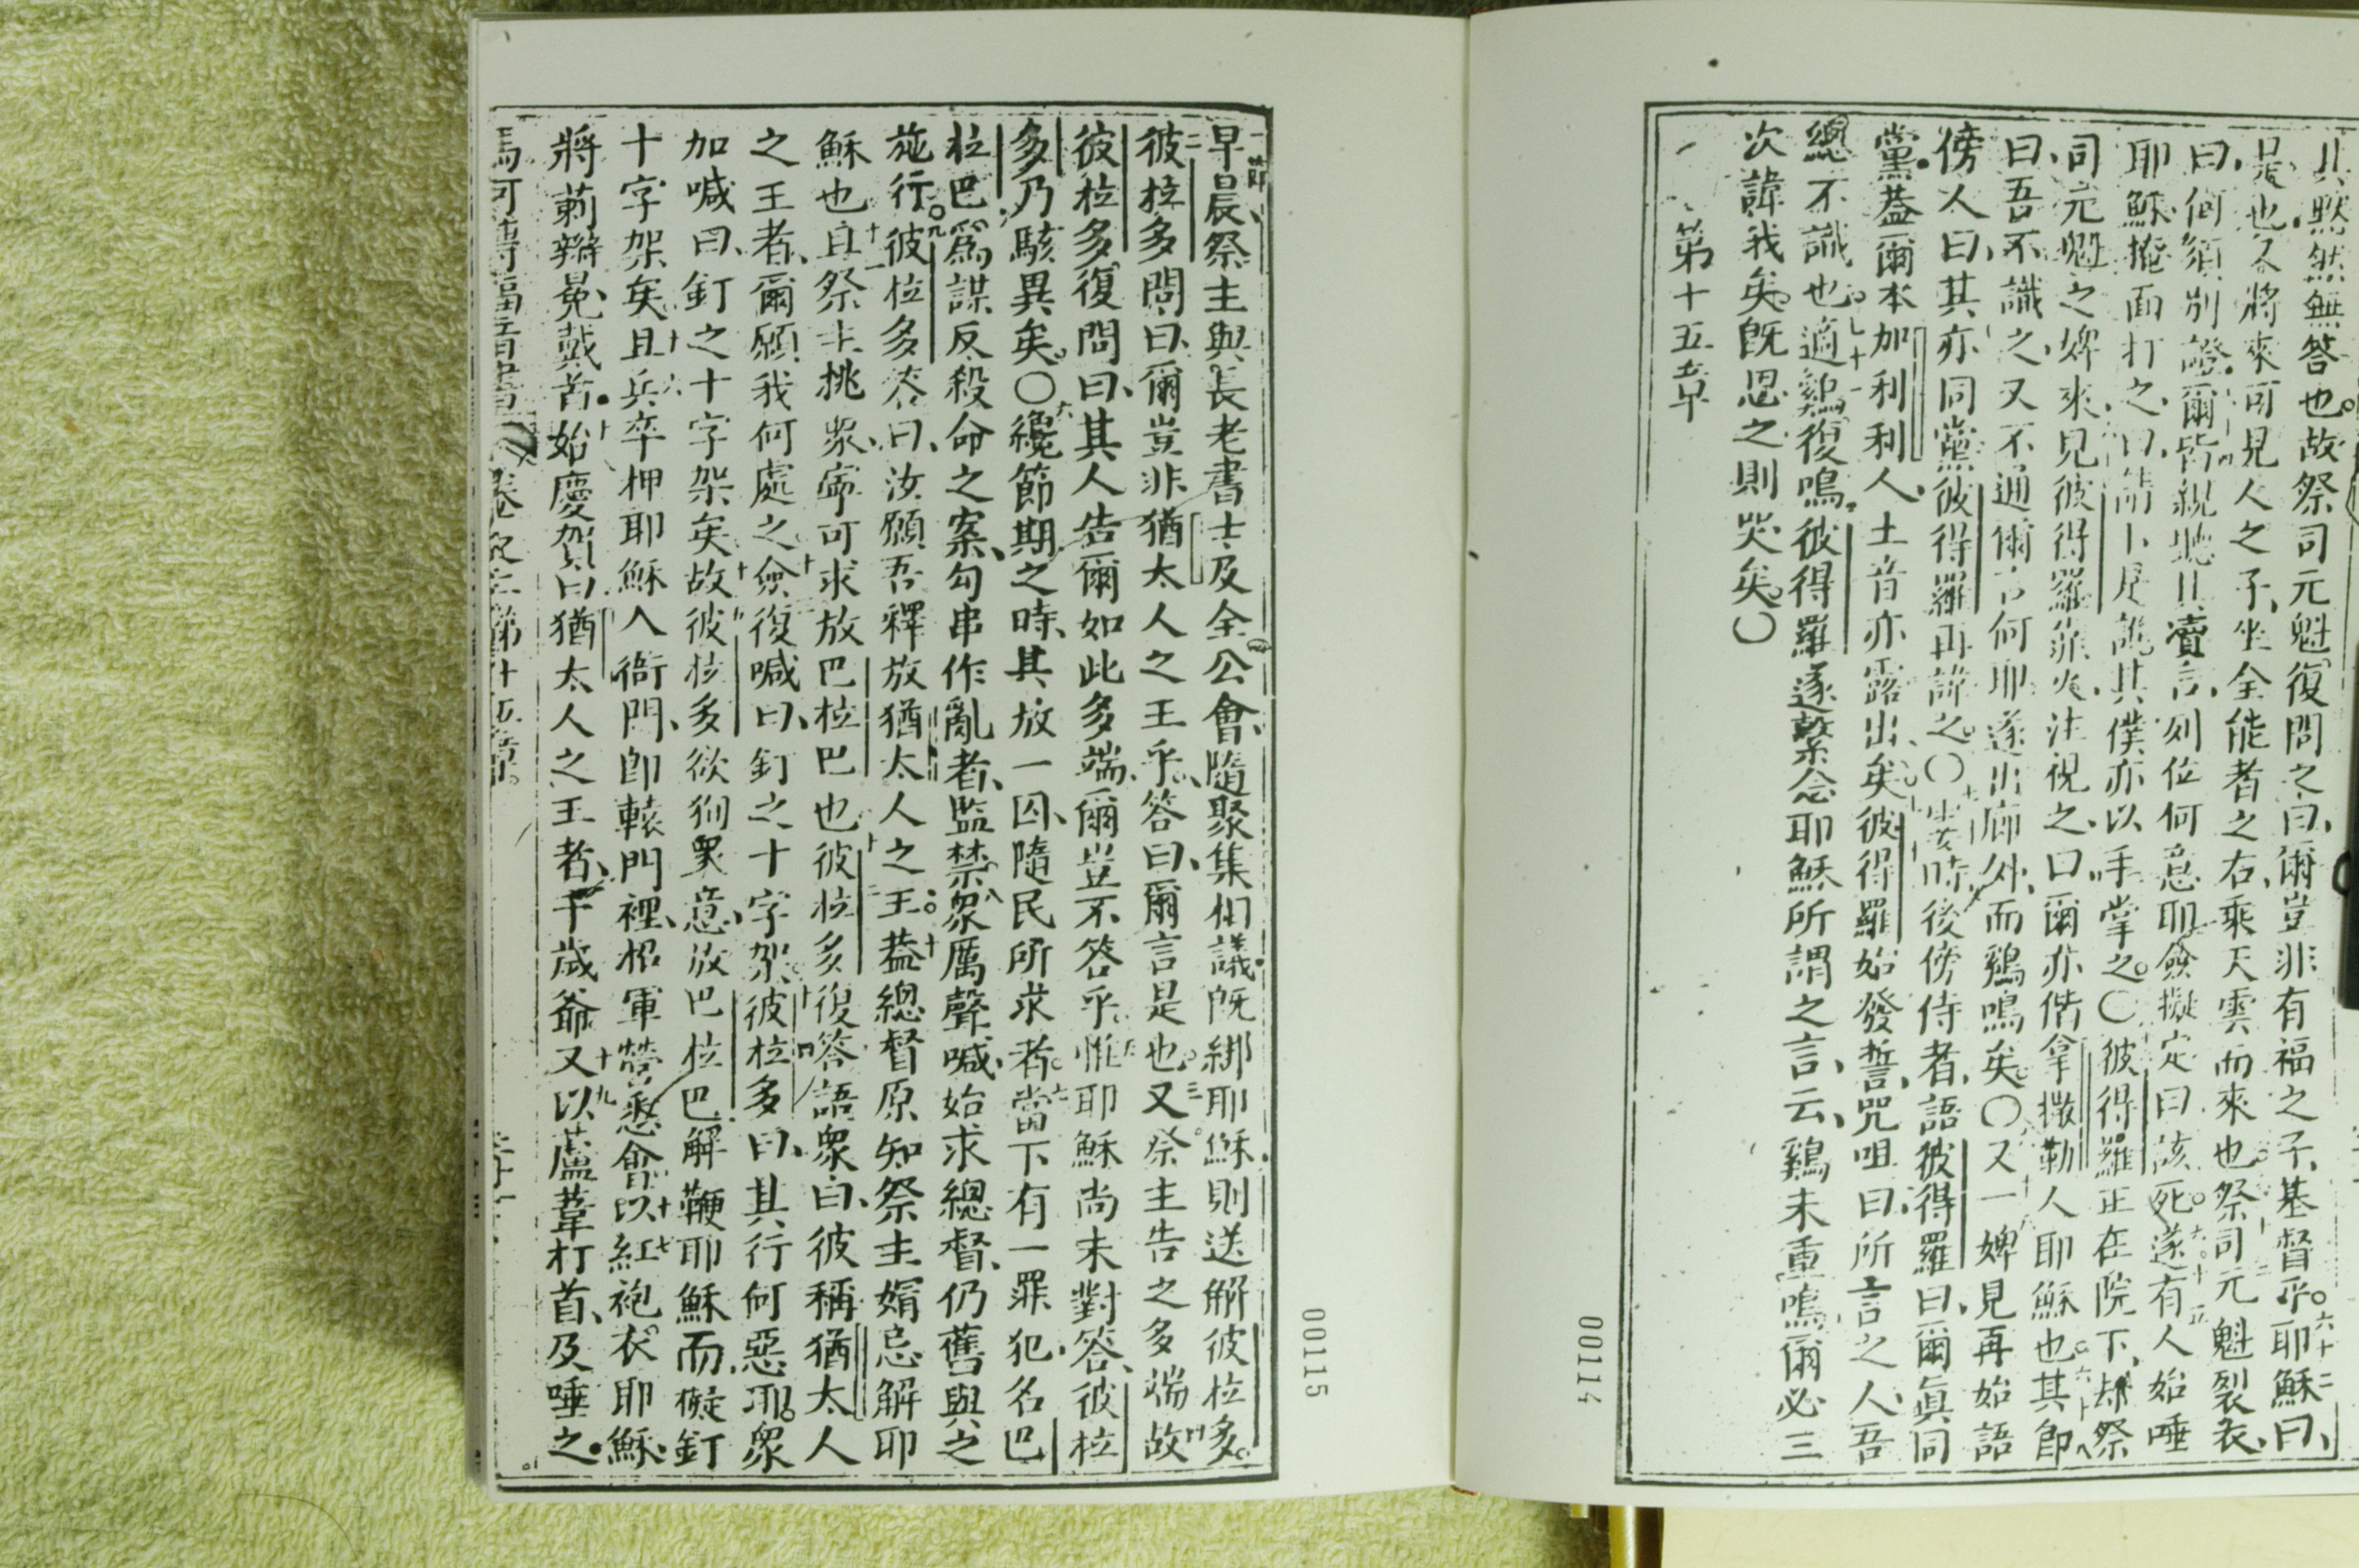 其默然無答也故祭司元魁復問之曰爾豈非有福之子基督乎耶穌曰
是也又將來可見人之子坐全能者之右乘天雲而來也祭司元魁裂衣
曰何須別證爾皆親聽其瀆言列位何意耶僉擬定曰該死遂有人始唾
耶穌掩面打之曰請卜是誰其僕亦以手掌之〇彼得羅正在院下却祭
司元魁之婢來見彼得羅靠火注視之曰爾亦偕拿撒勒人耶穌也其卽
曰吾不識之又不通爾言何耶遂出廊外而鷄鳴矣〇又一婢見再始語
傍人曰其亦同黨彼得羅再諱之〇時後傍侍者語彼得羅曰爾眞同
黨蓋爾本加利利人土音亦露出矣彼得羅始發誓咒咀曰所言之人吾
總不識也適鷄復鳴彼得羅遂繫念耶穌所謂之言云鷄未重鳴爾必三
次諱我矣旣思之則哭矣〇
第十五章
00114
一節早晨祭主與長老書士及全公會隨聚集相議旣綁耶穌則送解彼拉多
彼拉多問曰爾豈非猶太人之王乎答曰爾言是也又祭主告之多端故
彼拉多復問曰其人告爾如此多端爾豈不答乎惟耶穌尚未對答彼拉
多乃駭異矣〇纔節期之時其放一囚隨民所求者當下有一罪犯名巴
拉巴爲謀反殺命之案勾串作亂者監禁衆厲聲喊始求總督仍舊與之
施行彼拉多答曰汝願吾釋放猶太人之王蓋總督原知祭主媢忌解耶
穌也且祭主挑衆寧可求放巴拉巴也彼拉多復答語衆曰彼稱猶太人
之王者爾願我何處之僉復喊曰釘之十字架彼拉多曰其行何惡耶衆
加喊曰釘之十字架矣故彼拉多欲徇衆意放巴拉巴解鞭耶穌而擬釘
十字架矣且兵卒押耶穌入衙門卽轅門裡招軍營悉會以紅袍衣耶穌
將莿辮冕戴首始慶賀曰猶太人之王者千歲爺又以蘆葦打首及唾之
馬可傳福音書 卷 第十五章
00115